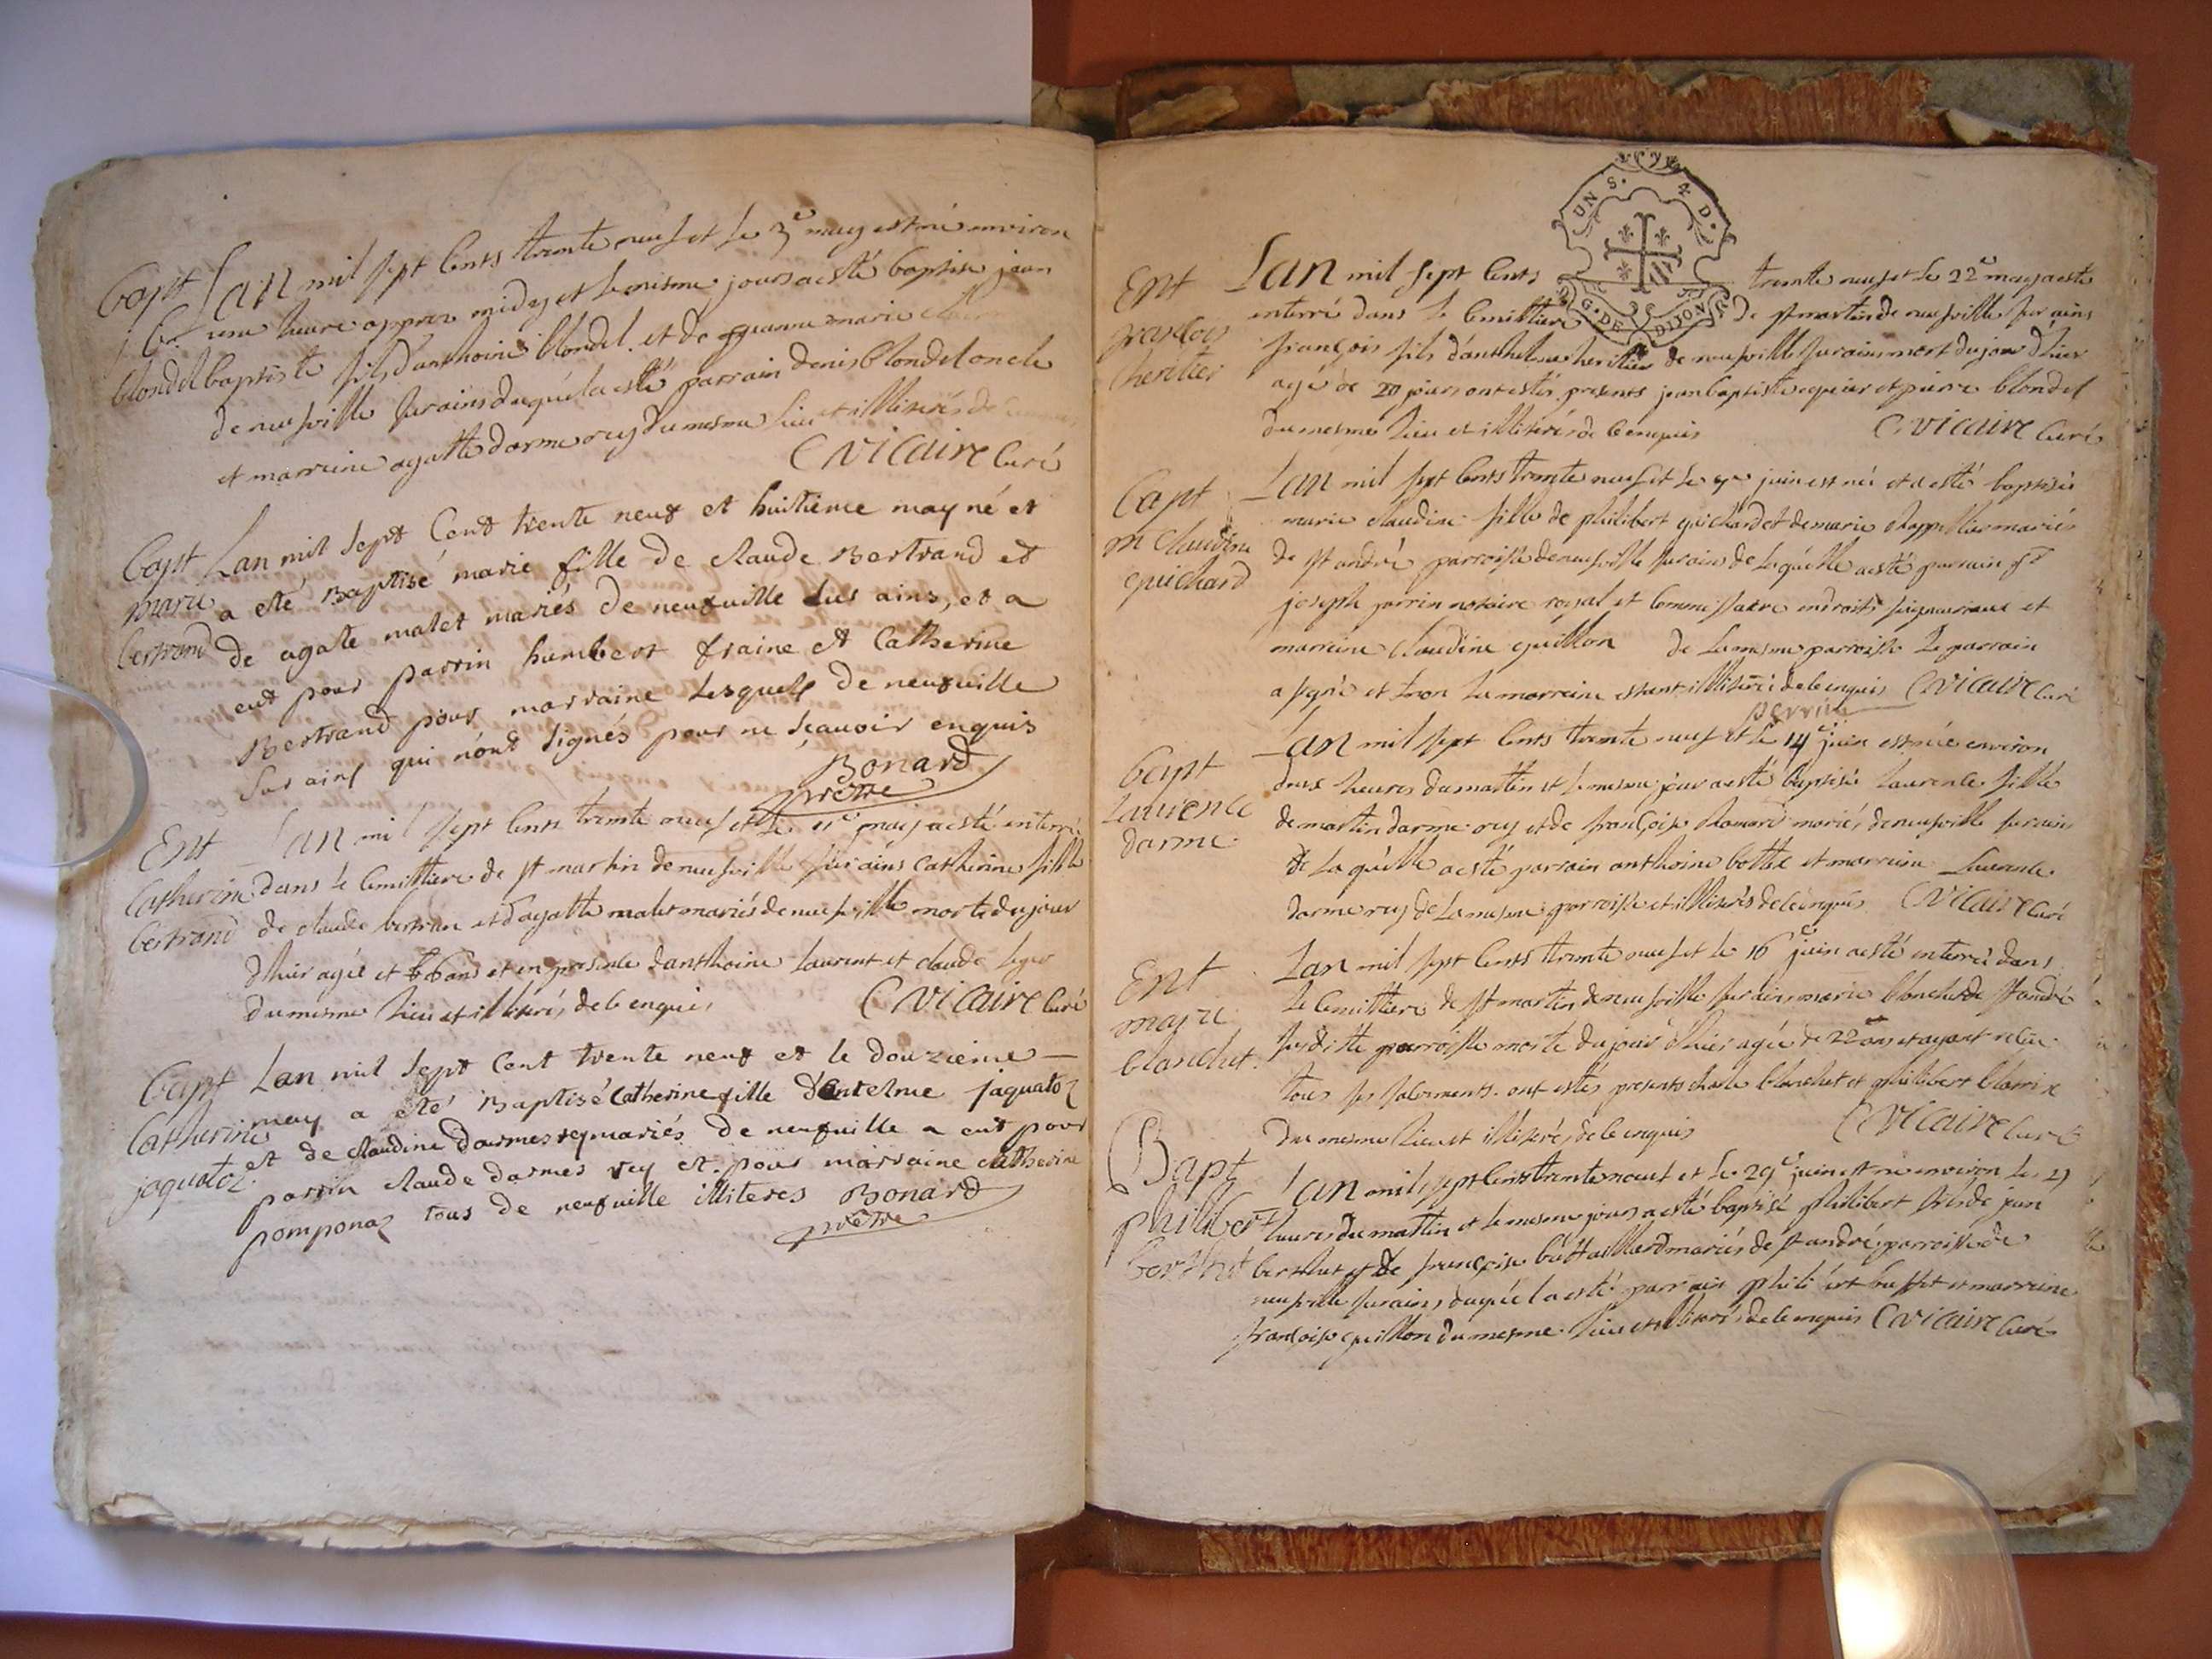 Bapt
j b^te
blondel
Lan mil sept Cents trente neuf et le 3^e may est né environ
une heure apprez midy et le mesme jours a esté baptisé jean
baptiste fils d'anthoine blondel et de jeanne marie
de neufville sur ains duquél a esté parrain denis blondel oncle
et marreine agatte darme rey du mesme lieu et illiterés de
C VICAIRE Curé
Bapt
marie
bertrand
Lan mil sept Cent trente neuf et huitieme may né et
a eté Baptisé marie fille de claude Bertrand et
de agate malet mariés de neufuille sus ains, et a
eut pour parrin humbert fraine et Catherine
Bertrand pour marraine lesquels de neufuille
sur ains qui n'ont signés pour ne sçauoir enquis
Bonard
prêtre
Ent
Catherine
bertrand
Lan mil sept Cents trente neuf et le 11^e may a esté enterré
dans le Cemittiere de st martin de neufville sur ains Catherine fille
de claude bertran et d'agatte malet mariés de neufville morte du jour
d'hier agée et 6 ans et en presence d'anthoine laurent et claude leger
du mésme lieu et illiterés de ce enquis
C VICAIRE Curé
Bapt
Catherine
jaquatoz
Lan mil sept Cent trente neuf et le douzieme
may a eté Baptisé Catherine fille D'antelme jaquatoz
et de claudine Darmes rey mariés de neufuille a eut pour
parrin claude darmes rey et pour marraine catherine
pomponaz tous de neufuille illiteres Bonard
prêtre
Ent
francois
cheritier
Lan mil sept Cents trente neuf et le 22^e may a esté
enterré dans le Cemittiere de st martin de neufville sur ains
françois fils d'anthelme cheritier de neufville sur ains mort du jour d'hier
agé de 20 jours ont estés presents jean baptiste et pierre blondel
du mesme lieu et illiterés de ce enquis
C VICAIRE Curé
UN S. 4 D.
G. DE DIJON
Bapt
m claudine
guichard
Lan mil sept Cents trente neuf et le juin est née et a esté baptisée
marie claudine fille de philibert guichard et de marie chappellier mariés
de st andré parroisse de neufville sur ains de laquélle a esté parrain s^r
joseph perrin notaire royal et Commissaire en droits seigneuriaux et
marreine claudine guillon de la mesme parroisse le parrain
a signé et non la marreine estant illiterée de ce enquis C VICAIRE Curé
perrin
Bapt
Laurence
darme
Lan mil sept Cents trente neuf et le 14^e juin est née environ
deux heures du mattin et le mesme jour a esté baptisée laurence fille
de martin darme rey et de françoise chanard mariés de neufville sur ains
de laquélle a esté parrain anthoine bottex et marreine Laurence
darme rey de la mesme parroisse et illiterés de ce enquis C VICAIRE Curé
Ent
marie
blanchet
Lan mil sept Cents trente neuf et le 16^e juin a esté enterrée dans
le Cemittiere de st martin de neufville sur ains marie blanchet de st andré
susditte parroisse morte du jour d'hier agée de 22 ans et ayant reçeu
tous ses sacrements ont estés presents charle blanchet et philibert
du mesme lieu et illiterés de ce enquis
C VICAIRE Curé
Bapt
philibert
berthet
Lan mil sept Cents trente neuf et le 29^e juin est né environ les
heures du mattin et le mesme jours a esté baptisé philibert fils de jean
berthet et de françoise battaillard mariés de st andré parroisse de
neufville sur ains duquél a esté parrain philibert buffet et marreine
françoise guillon du mesme lieu et illiterés de ce enquis C VICAIRE Curé